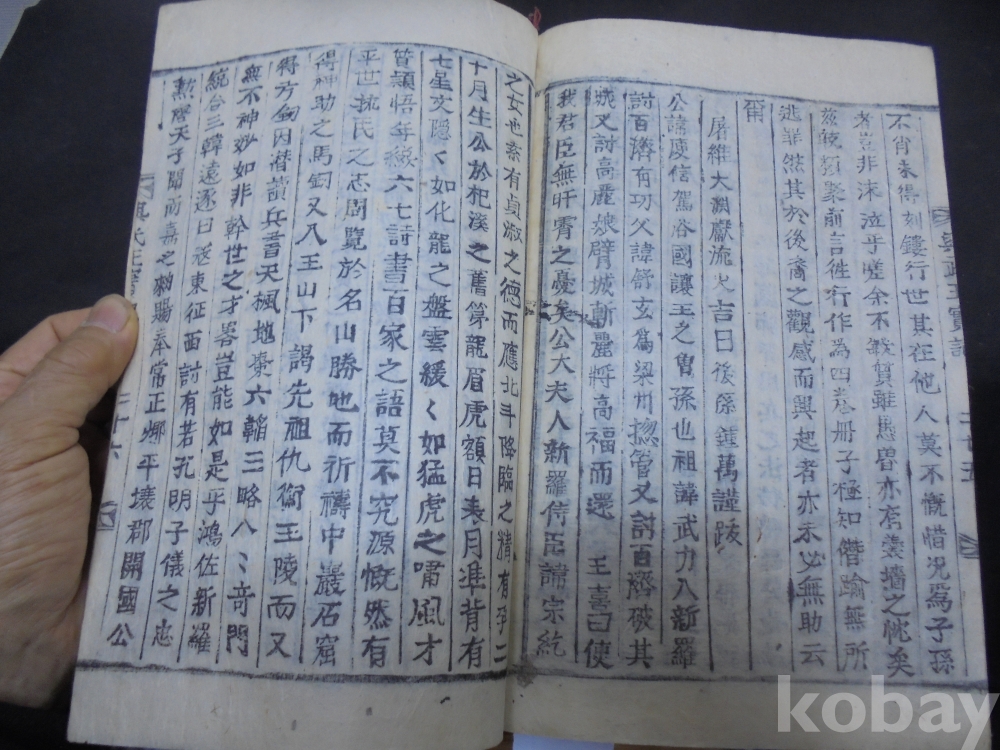 不肖未得刻鏤行世其在他人莫不慨惜况爲子孫
者豈非沫泣乎嗟余不敏質雖愚魯亦有羹墻之忱矣
玆輒類聚前言徃行作為四卷册子極知僭踰無所
逃罪然其於後裔之觀感而興起者亦未必無助云
爾
屠維大淵獻流火吉日後孫鍾萬謹跋
公諱庾信駕洛國讓王之曾孫也祖諱武力入新羅
討百濟有功父諱舒玄爲梁州揔管又討百濟破其
城又討高麗娘臂城斬麗將高福而還 王喜曰使
我君臣無旰霄之憂矣公大夫人新羅侍臣諱宗紇
二十五
之女也素有貞淑之德而應北斗降臨之精有孕二
十月生公於杞溪之舊第龍眉虎額日表月準背有
七星文隱〻如化龍之盤雲緩〻如猛虎之嘯風才
質穎悟年纔六七詩書百家之語莫不究源慨然有
平世拯民之志周覽於名山勝地而祈禱中巖石窟
得神助之馬釰又入王山下謁先祖仇衡王陵而又
得方釰因潜讀兵書天楓地棗六韜三略八〻竒門
無不神妙如非幹世之才畧豈能如是乎鴻佐新羅
統合三韓遠逐日寇東征西討有若孔明子儀之忠
勲唐天子聞而嘉之勑賜奉常正卿平壤郡開國公
二十六
kobay